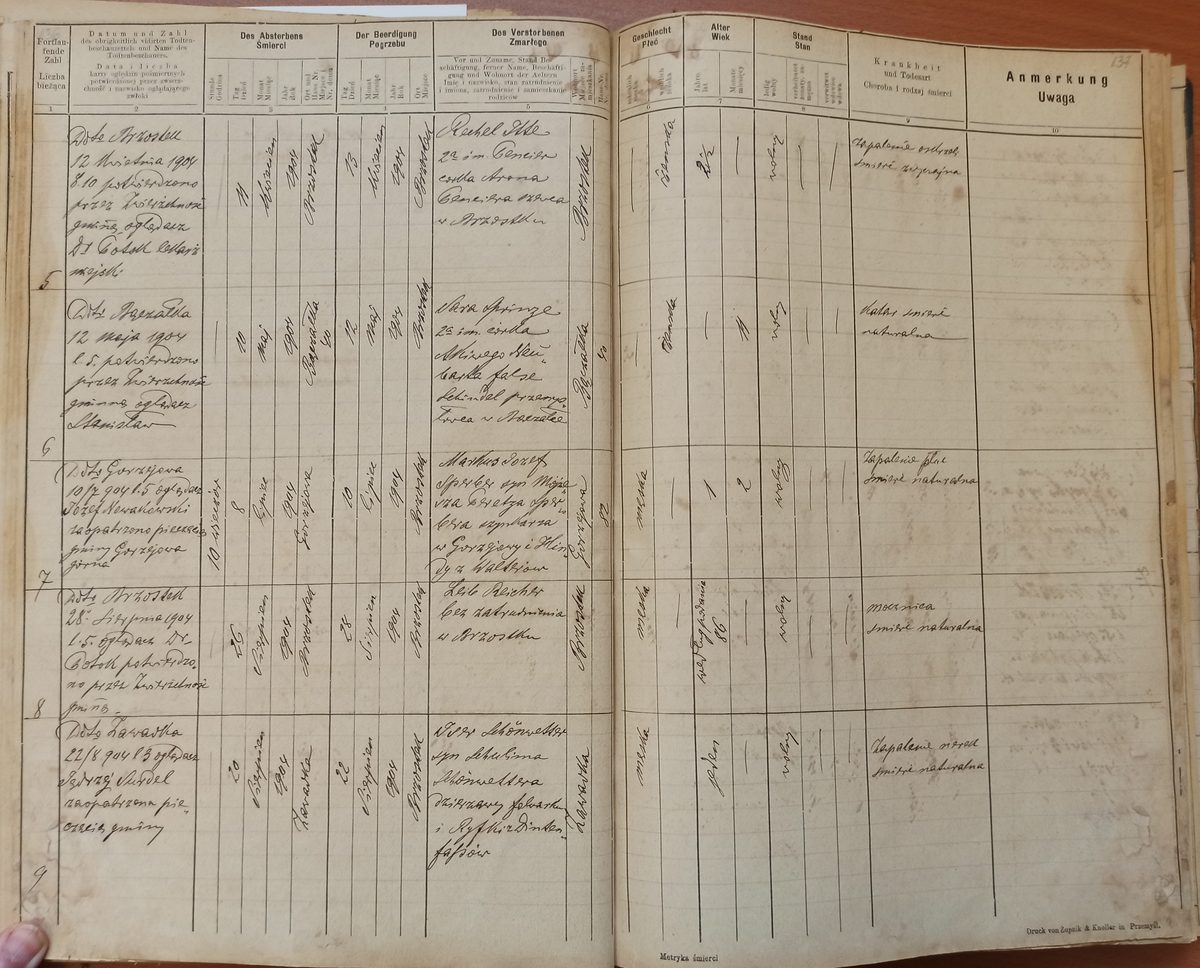 Fortlaufende Zahl
Liczba bieżąca
Datum und Zahl
des obrigkeitlich vidirten Todten-
beschauzettels und Name des
Todtenbeschauers.
Data i liczba
karty oględzin pośmiertnych
potwierdzonej przez zwierz-
chność i nazwisko oglądającego
zwłoki
Des Absterbens
Śmierci
Stunde
Godzina
Tag
dzień
Monat
Miesiąc
Jahr
Rok
Der Beerdigung
Pogrzebu
Tag
Dzień
Monat
Miesiąc
Jahr
Rok
Ort
Miejsce
Des Verstorbenen
Zmarłego
Vor und Zuname, Stand Be-
schäftigung, ferner Name, Beschäfti-
gung und Wohnort der Aeltern
Imię i nazwisko, stan zatrudnienie
i imiona, zatrudnienie i zamieszkanie
rodziców
Geschlecht
Płeć
Alter
Wiek
Jahre
lat
Monate
miesięcy
Stand
Stan
ledig
wolny
Krankheit
und Todesart
Choroba i rodzaj śmierci
Anmerkung
Uwaga
134
1
2
3
4
5
6
7
8
9
10
5
Dtto Brzostek
12 Kwietnia 1904
l 10 potwierdzono
przez Zwierzchność
gminną oglądacz
Dr Potok lekarz
miejski
—
11
Kwiecien
1904
Brzostek
13
Kwiecien
1904
Brzostek
Rechel Itte
2ga im.
corka Arona
szewca
w Brzostku
Brzostek
—
żenska
2½
—
wolny
—
—
Zapalenie oskrzeli
śmierć zwyczajna
6
Dtto Bączałka
12 maja 1904
l. 5. potwierdzono
przez Zwierzchność
gminną oglądacz
Stanisław
—
10
maj
1904
Bączałka
40
12
maj
1904
Brzostek
Sara Sprinze
2ga im. córka
Akiwego Neu-
false
Schindel przemys-
łowca w Bączałce
Bączałka
40
—
żenska
—
11
wolny
—
—
Katar śmierć
naturalna
7
Dtto Gorzejowa
10/7 904 l. 5 oglądacz
Józef Nowakowski
zaopatrzono pieczęcią
gminy Gorzejowa
górna
10 wieczór
8
Lipiec
1904
Gorzejowa
10
Lipiec
1904
Brzostek
Markus Jozef
Sperber syn Moje-
sza Peretza Sper-
bera szynkarza
w Gorzejowy i Hin-
dy z Walterów
Gorzejowa
82
męska
—
1
2
wolny
—
—
Zapalenie płuc
śmierć naturalna
8
Dtto Brzostek
28 Sierpnia 1904
l. 5. oglądacz Dr.
Potok potwierdzo-
no przez Zwierzchność
gminą.
—
26
Sierpien
1904
Brzostek
28
Sierpien
1904
Brzostek
Leib Reicher
bez zatrudnienia
w Brzostku
Brzostek
męska
—
według podania
86
—
wolny
—
—
mocznica
śmierć naturalna
9
Dtto Zawadka
22/8 904 l 3 oglądacz
Jędrzej
zaopatrzona pie-
częcią gminy
—
20
Sierpien
1904
Zawadka
22
Sierpien
1904
Brzostek
Iser Schönwetter
syn Schulima
Schönwettera
dzierzawcy folwarku
i Ryfki z Dinten-
fassów
Zawadka
męska
—
jeden
—
wolny
—
—
Zapalenie nerek
śmierć naturalna
Metryka śmierci
Druck von Żupnik & Knoller in Przemyśl.